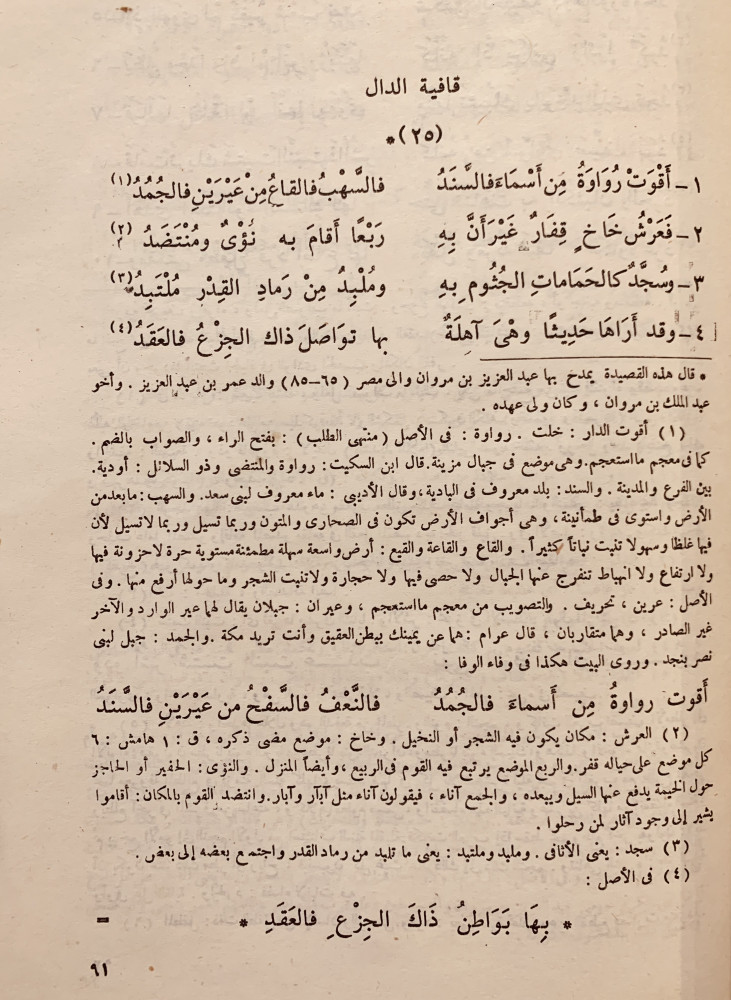 قافية الدال
(٢٥)*
١ـ أَقْوَتْ رُوَاوَةُ مِن أَسْمَاءَ فالسَّنَدُ فالسَّهْبُ فالقاعُ مِنْ عَيْرَيْنِ فالجُمُدُ (١)
٢ـ فَعَرْشُ خَاخٍ قِفَارٌ غَيْرَ أَنَّ بِهِ رَبْعًا أَقامَ به نُؤْىٌ ومُنْتَضَدُ (٢)
٣ـ وسُجَّدٌ كالحَمَاماتِ الجُثُومِ بِهِ ومُلْبِدٌ مِنْ رَمادِ القِدْرِ مُلْتَبِدُ (٣)
٤ـ وقد أَرَاهَا حَدِيثًا وهْىَ آهِلَةٌ بها تَوَاصَلَ ذاك الجِزْعُ فالعَقَدُ (٤)
* قال هذه القصيدة يمدح بها عبد العزيز بن مروان والى مصر (٦٥–٨٥) والد عمر بن عبد العزيز . وأخو
عبد الملك بن مروان ، وكان ولى عهده .
(١) أقوت الدار : خلت . رواوة : فى الأصل (منتهى الطلب) : بفتح الراء ، والصواب بالضم .
كما فى معجم ما استعجم. وهى موضع فى جبال مزينة. قال ابن السكيت: رواوة والمنتضى وذو السلائل : أودية.
بين الفرع والمدينة . والسند: بلد معروف فى البادية، وقال الأديبى : ماء معروف لبنى سعد. والسهب: ما بعد من
الأرض واستوى فى طمأنينة، وهى أجواف الأرض تكون فى الصحارى والمتون وربما تسيل وربما لا تسيل لأن
فيها غلظا وسهولا تنبت نباتاً كثيراً . والقاع والقاعة والقيع : أرض واسعة سهلة مطمئنة مستوية حرة لا حزونة فيها
ولا ارتفاع ولا انهباط تنفرج عنها الجبال ولا حصى فيها ولا حجارة ولا تنبت الشجر وما حولها أرفع منها . وفى
الأصل : عرين ، تحريف . والتصويب من معجم ما استعجم ، وعيران : جبلان يقال لهما عير الوارد والآخر
غير الصادر ، وهما متقاربان ، قال عرام : هما عن يمينك ببطن العقيق وأنت تريد مكة . والجمد : جبل لبنى
نصر بنجد . وروى البيت هكذا فى وفاء الوفا :
أَقوت رواوةُ مِن أَسماءَ فالجُمُدُ فالنَّعْفُ فالسَّفْحُ من عَيْرَيْنِ فالسَّنَدُ
(٢) العرش : مكان يكون فيه الشجر أو النخيل . وخاخ : موضع مضى ذكره ، ق : ١ هامش : ٦
كل موضع على حياله قفر. والربع الموضع يرتبع فيه القوم فى الربيع ، وأيضاً المنزل . والنؤى: الحفير أو الحاجز
حول الخيمة يدفع عنها السيل ويبعده ، والجمع آناء ، فيقولون آناء مثل آبآر وآبار. وانتضد القوم بالمكان: أقاموا
يشير إلى وجود آثار لمن رحلوا .
(٣) سجد : يعنى الأثافى . وملبد وملتبد : يعنى ما تلبد من رماد القدر واجتمع بعضه إلى بعض .
(٤) فى الأصل :
* بِهَا بَوَاطِنُ ذَاكَ الجِزْعِ فالعَقَدِ * =
٩١